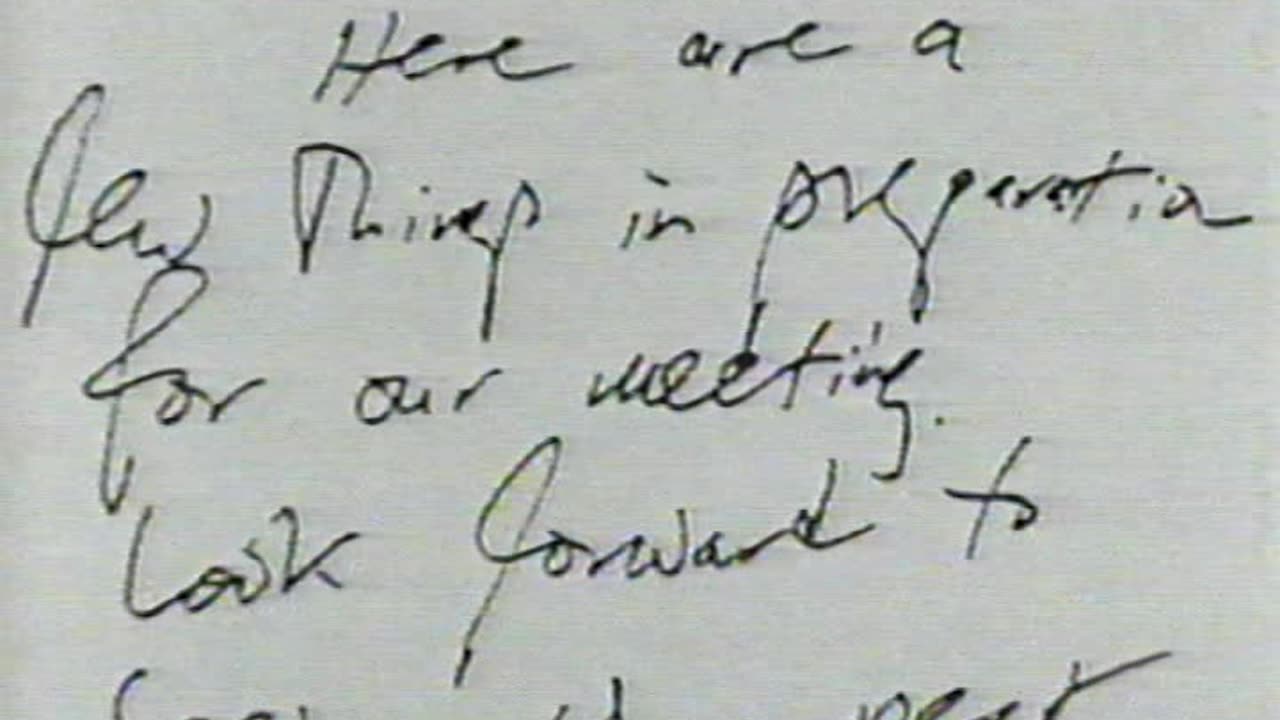 Here are a
few Things in preparation
for our meeting.
Look forward to
next